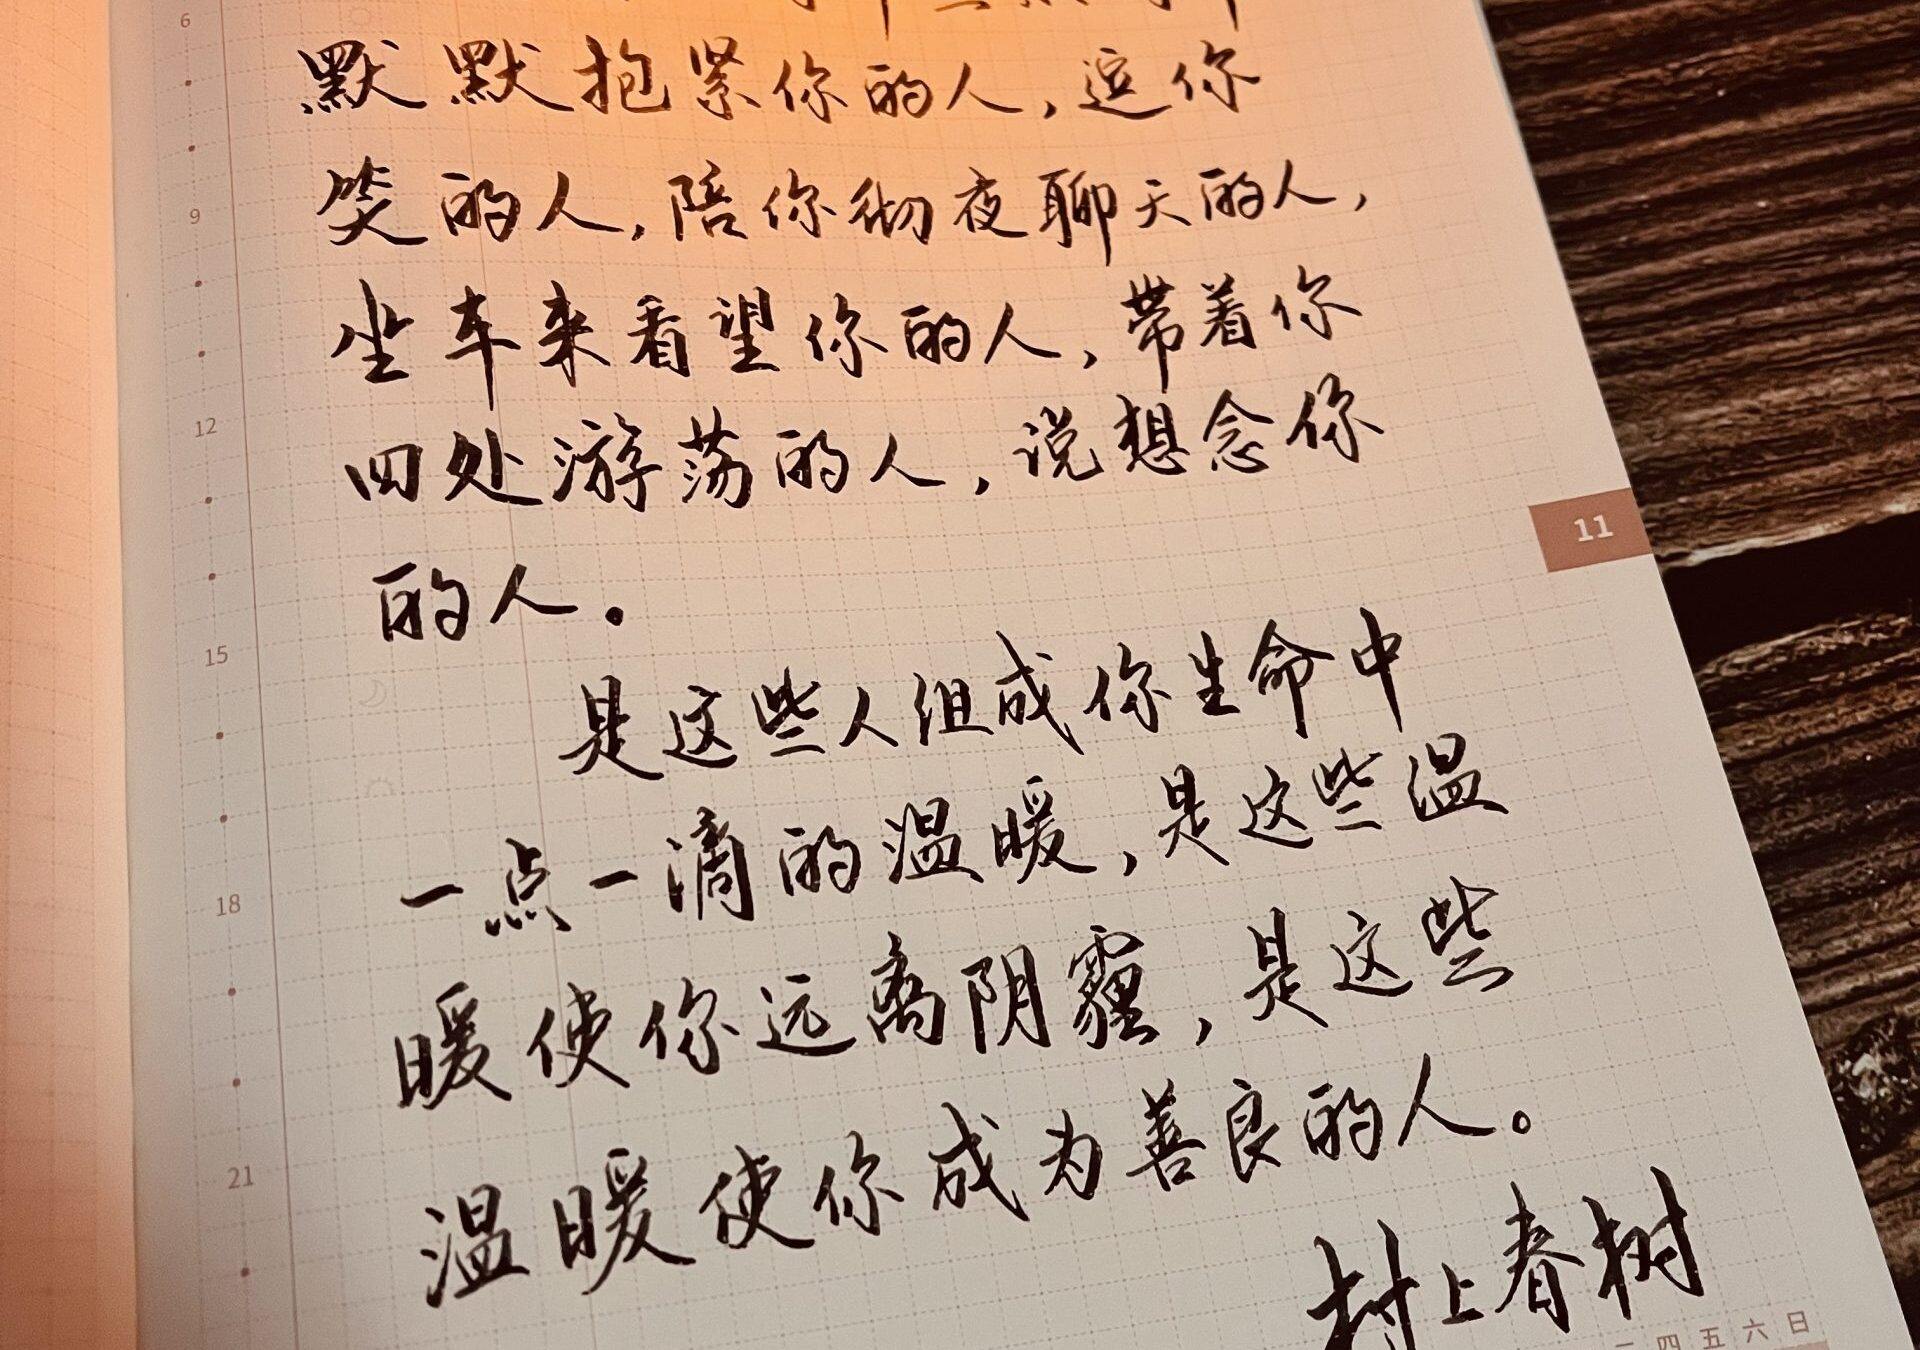 6
默默抱紧你的人,逗你
笑的人,陪你彻夜聊天的人,
9
坐车来看望你的人,带着你
四处游荡的人,说想念你
12
的人。
11
15
是这些人组成你生命中
一点一滴的温暖,是这些温
18
暖使你远离阴霾,是这些
温暖使你成为善良的人。
21
村上春树
四五六日